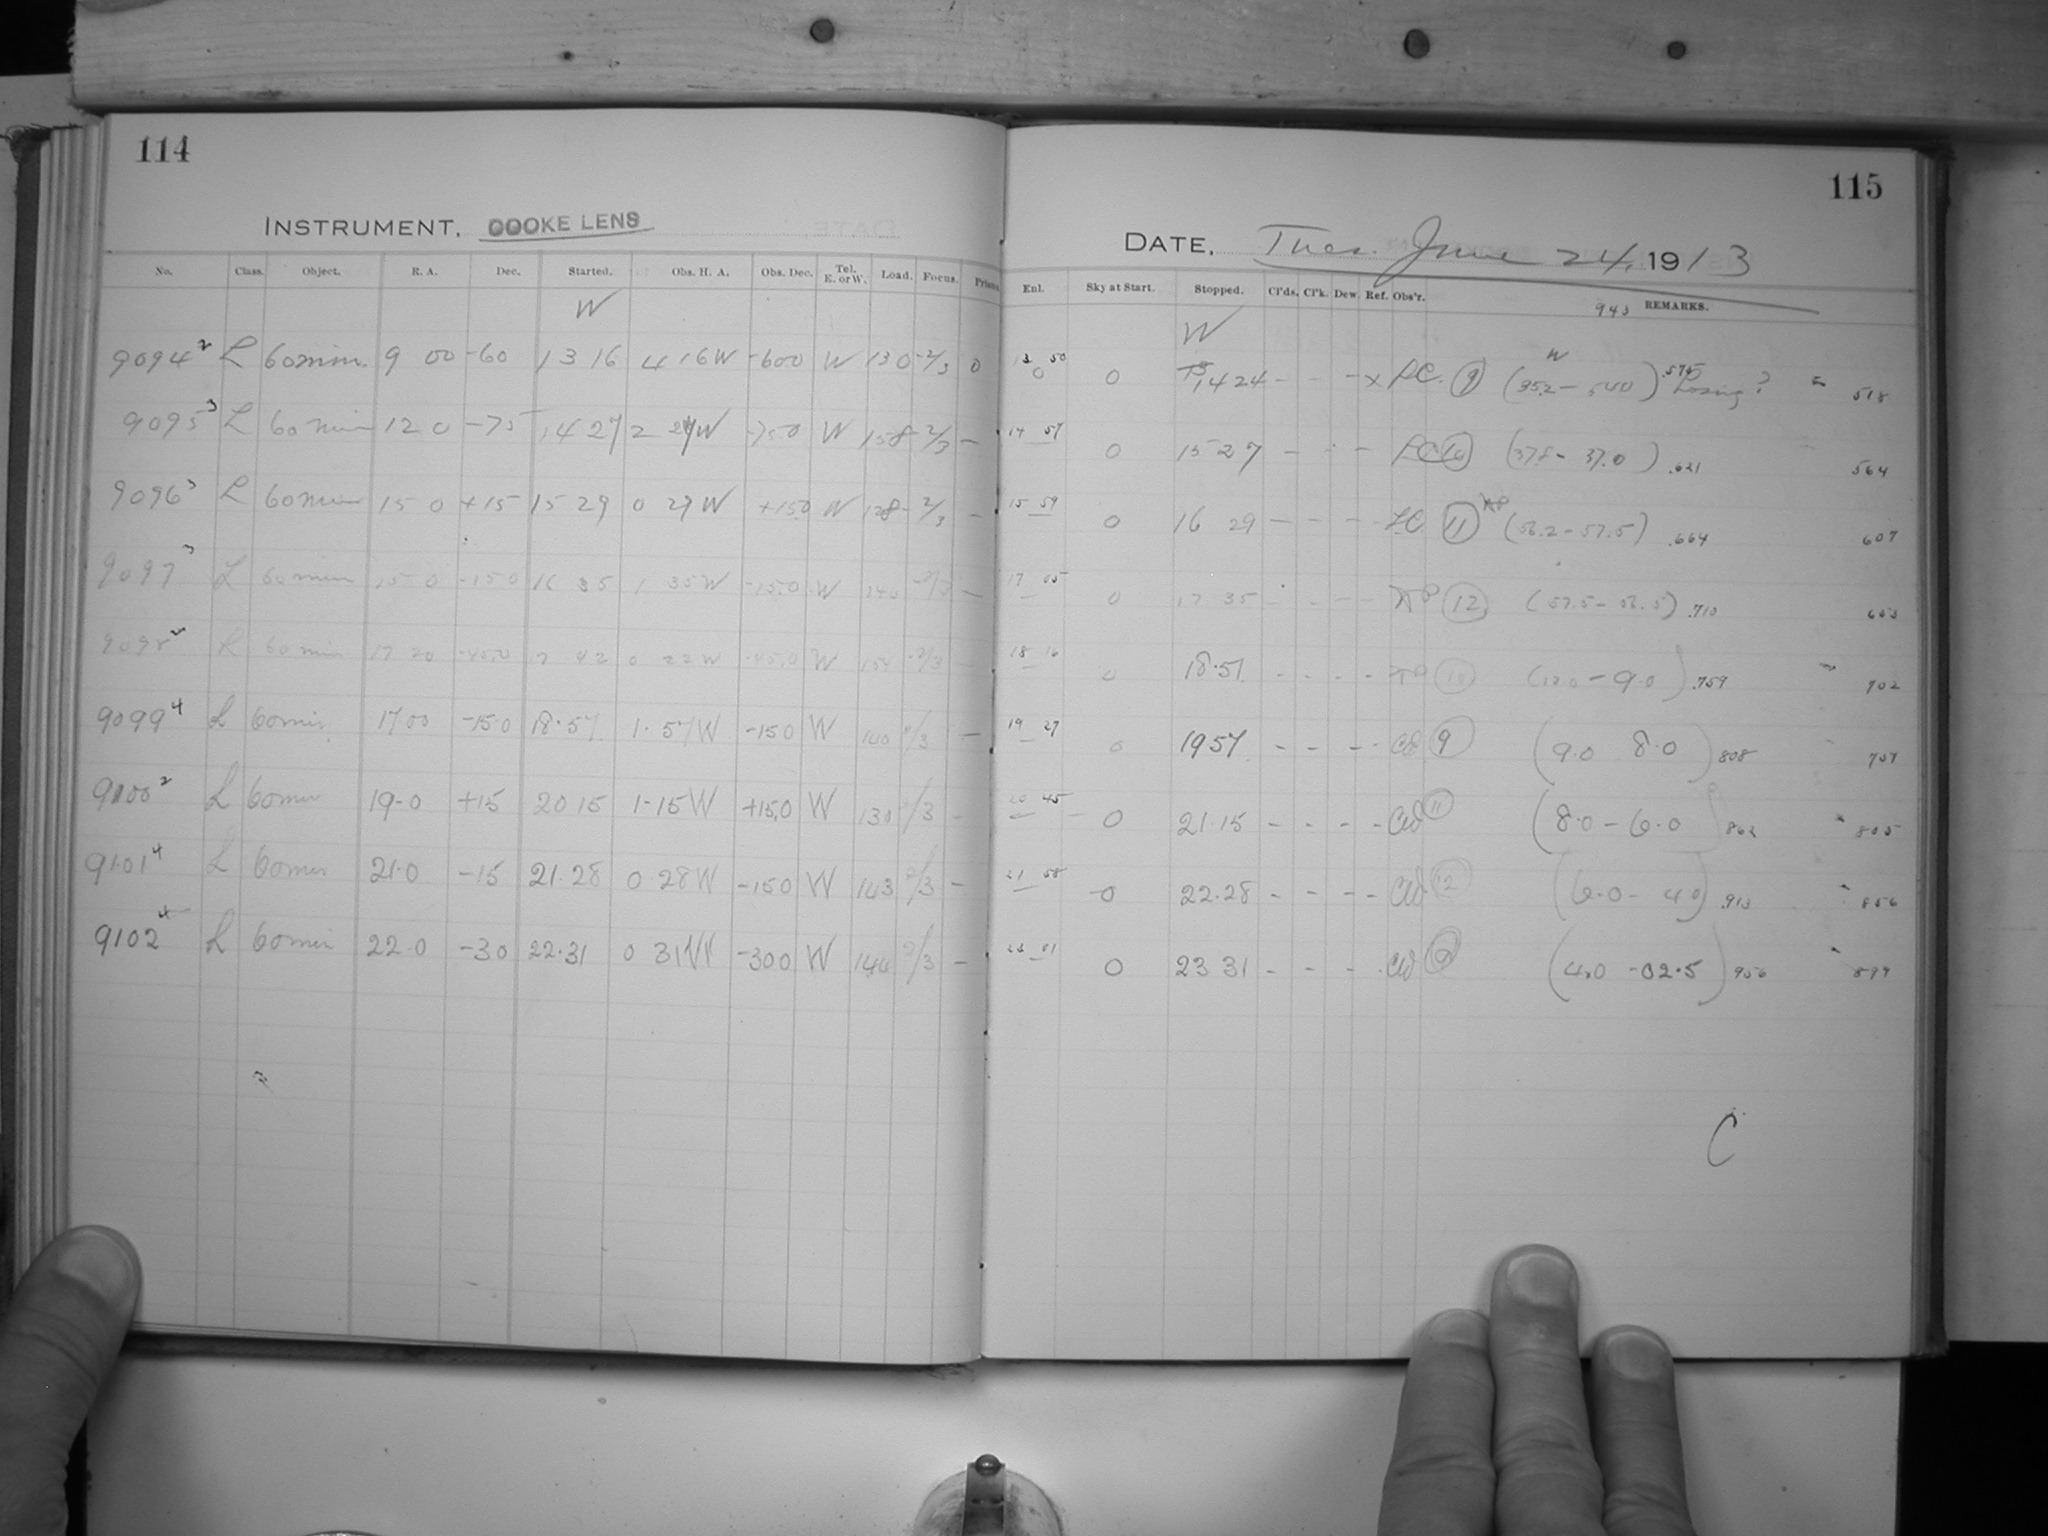 114
INSTRUMENT, COOKE LENS
No. Class. Object. R. A. Dec. Started. Obs. H. A. Obs. Dec. Tel. E. or W. Load. Focus. Prism
W
9094 2 L 60 min. 9 00 -60 13 16 4 16W -600 W 130 -2/3 0
9095 3 L 60 min 12 0 -75 14 27 2 27W -750 W 158 -2/3 -
9096 3 L 60 min 15 0 +15 15 29 0 29W +150 W 128 -2/3 -
9097 3 L 60 min 15 0 -150 16 35 1 35W -15.0 W 140 -2/3 -
9098 2 L 60 min 17 20 -45.0 17 42 0 22W -45.0 W 154 -2/3
9099 4 L 60 min. 17 00 -15.0 18.57 1.57W -150 W 140 2/3 -
9100 2 L 60 min 19-0 +15 20 15 1-15W +15.0 W 130 2/3 -
9101 4 L 60 min 21.0 -15 21.28 0.28W -150 W 143 2/3 -
9102 4 L 60 min 22.0 -30 22.31 0 31W -300 W 2/3 -
115
DATE, Tues. June 24, 1913
Enl. Sky at Start. Stopped. Cl'ds. Cl'k. Dew. Ref. Obs'r. 943 REMARKS.
W
13 50 0 0 14 24 - - - x LC. 9 W (35.2 - 54.0) .575 Losing? 518
14 57 0 15 27 - - - LC 10 (37.8 - 37.0) .621 564
15 59 0 16 29 - - - - LC. 11 (56.2 - 57.5) .664 607
17 05 0 17 35 - - - 12 (57.5 - 56.5) .710 653
18 16 0 18.51 - - - - (12.0 - 9.0) .759 702
19 27 0 1957 - - - - CW 9 (9.0 8.0) 808
20 45 0 21.15 - - - - CW 11 (8.0 - 6.0) 862 805
21 58 0 22.28 - - - - CW 12 (6.0 - 4.0) .913 856
23 01 0 23 31 - - - - CW (4.0 - 02.5) 956 899
C